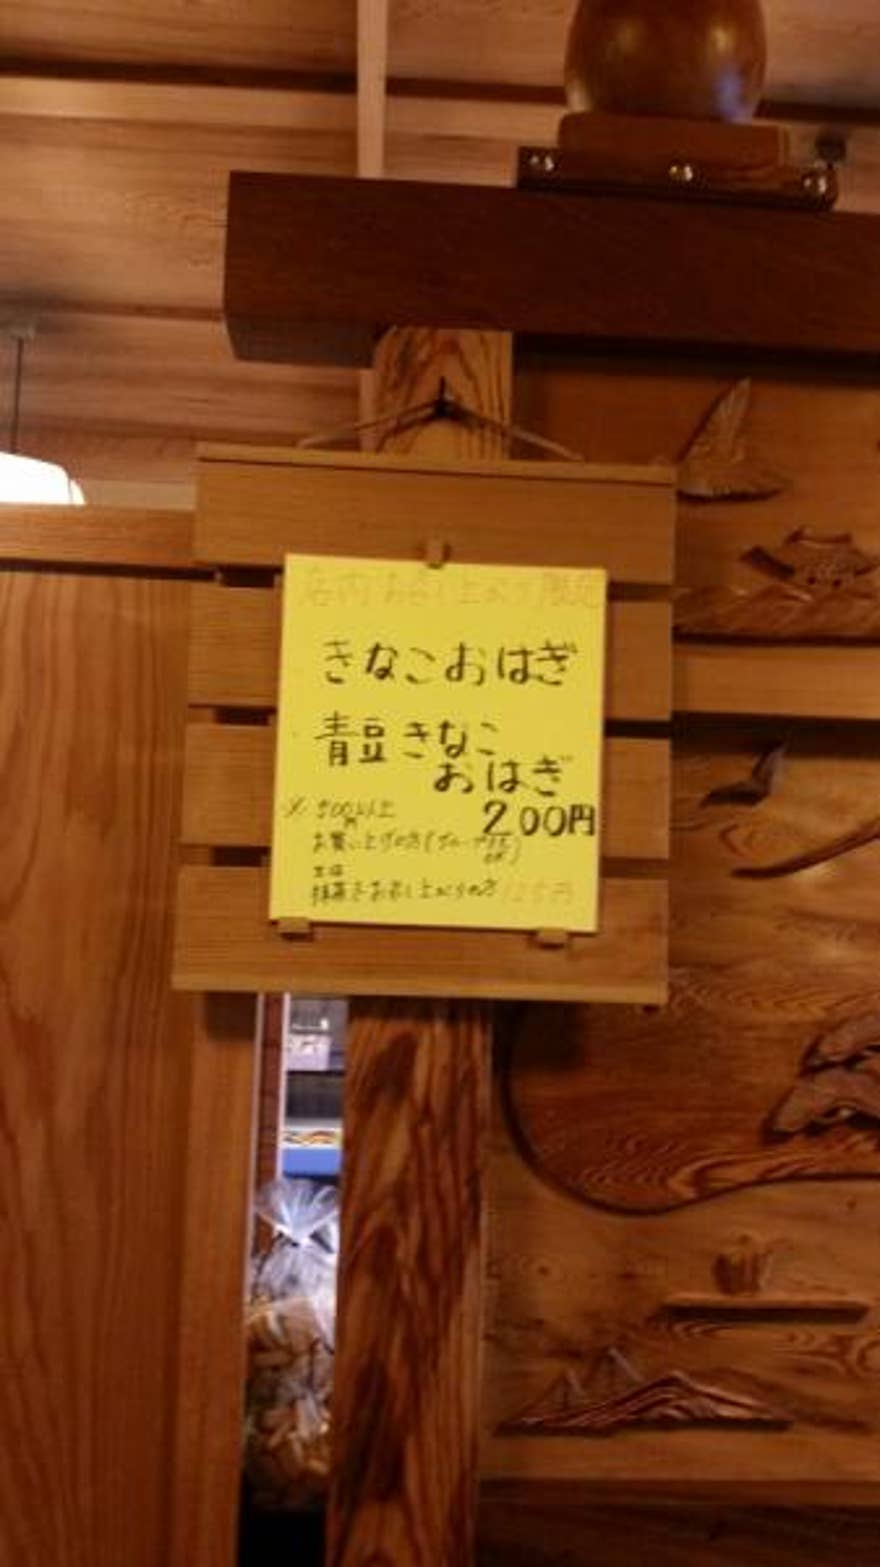 店内お召し上がり限定
きなこおはぎ
青豆きなこ
おはぎ
200円
※500円以上
お買い上げの方(グループ
抹茶をお召し上がりの方